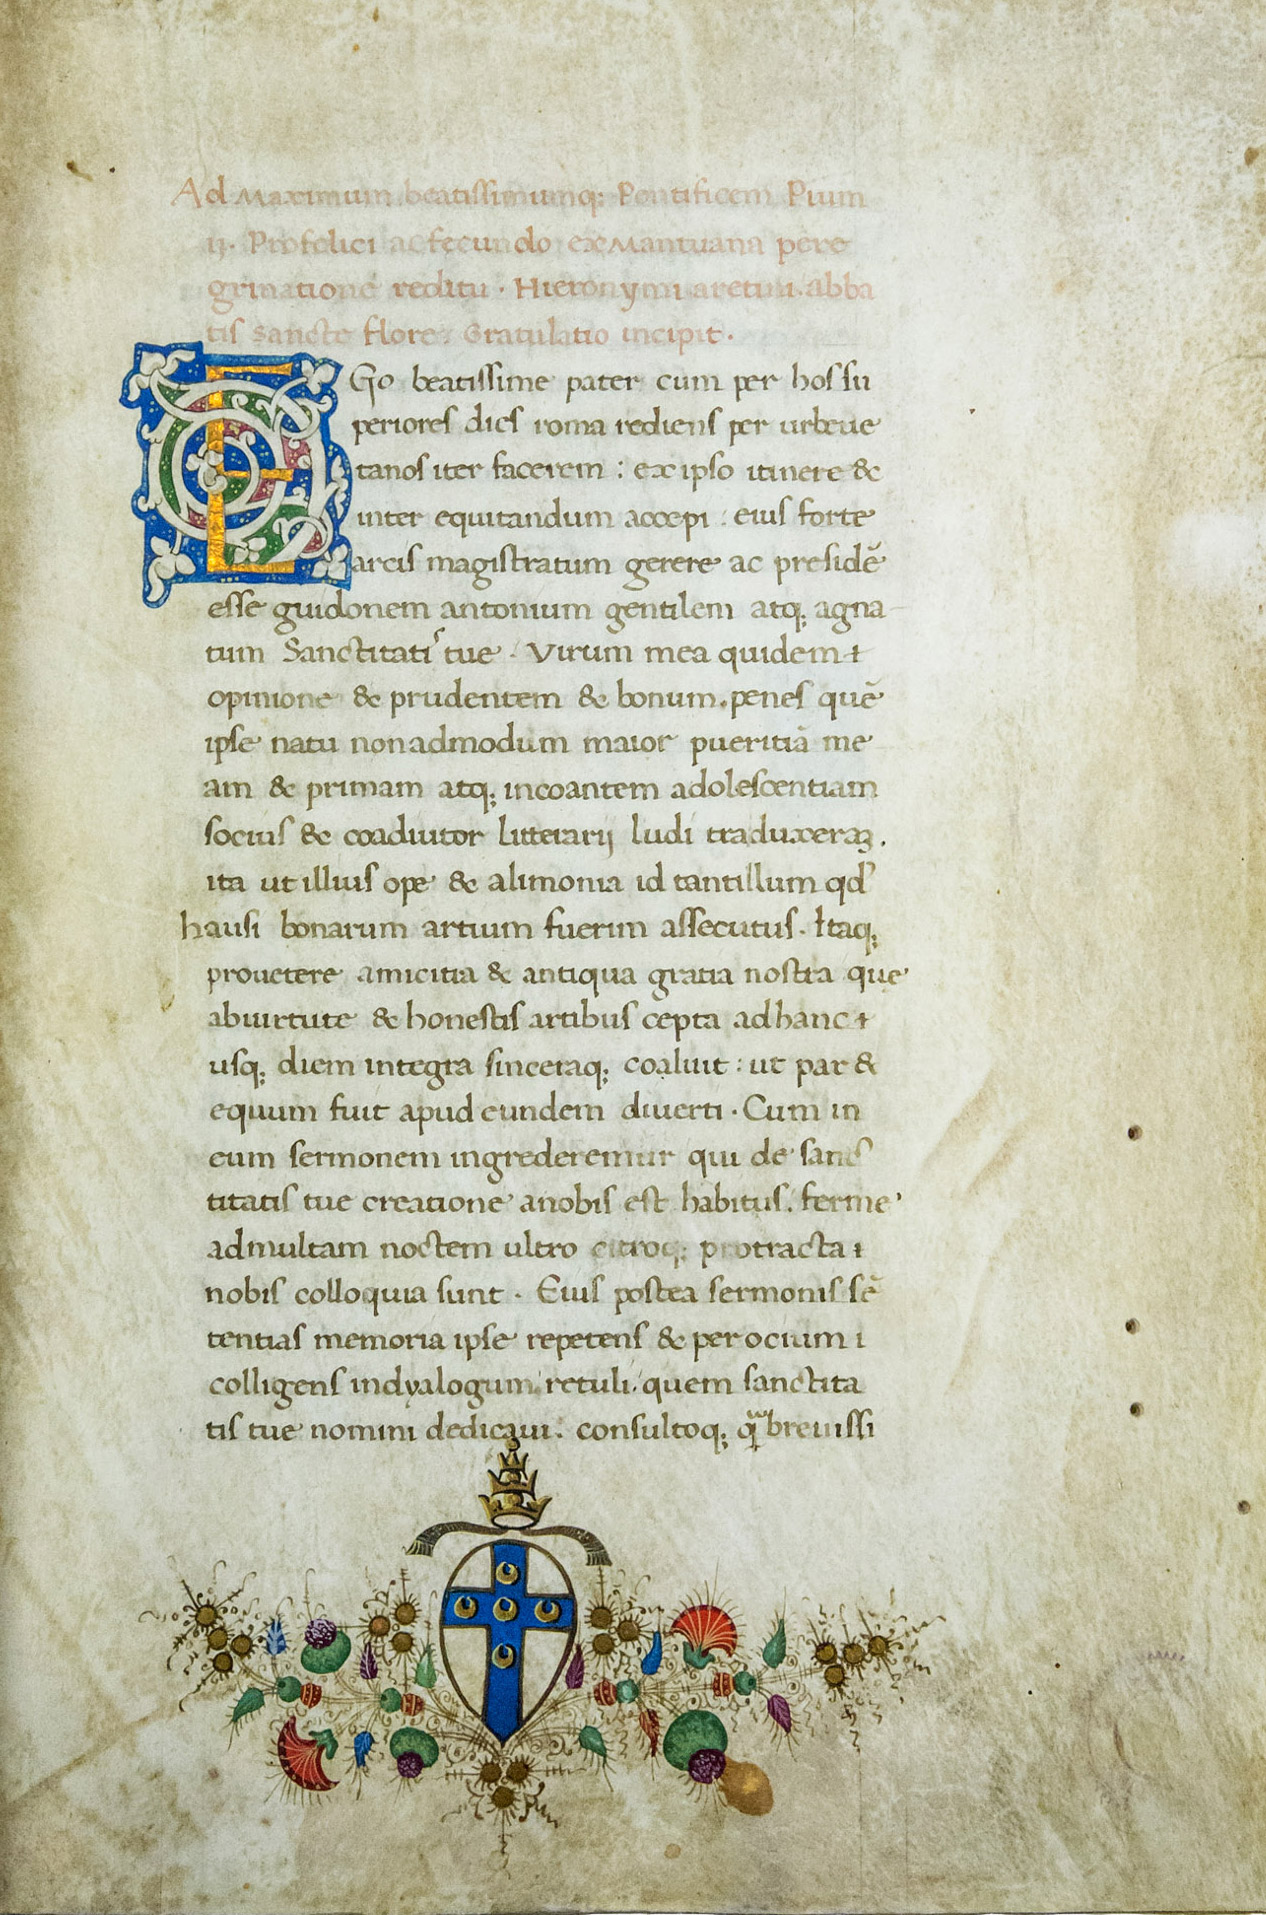 Ad Maximum beatissimumq; Pontificem Pium
ij. Pro felici ac fecundo ex Mantuana pere
grinatione reditu · Hieronymi aretini. abba
tis sancte flore: Gratulatio incipit ·
EGo beatissime pater cum per hos su
periores dies roma rediens per urbeue
tanos iter facerem : ex ipso itinere &
inter equitandum accepi : eius forte
arcis magistratum gerere ac presidē
esse guidonem antonium gentilem atq; agna
tum Sanctitatis tue · Virum mea quidem
opinione & prudentem & bonum. penes quē
ipse natu non admodum maior pueritiā me
am & primam atq; incoantem adolescentiam
socius & coadiutor litterarij ludi traduxeraꝫ.
ita ut illius ope & alimonia id tantillum qd'
hausi bonarum artium fuerim assecutus. Itaq;
prouetere amicitia & antiqua gratia nostra que
abuirtute & honestis artibus cepta ad hanc
usq; diem integra sinceraq; coaluit : ut par &
equum fuit apud eundem diuerti · Cum in
eum sermonem ingrederemur qui de sanc
titatis tue creatione anobis est habitus. ferme
ad multam noctem ultro citroq; protracta
nobis colloquia sunt · Eius postea sermonis sē
tentias memoria ipse repetens & per ocium
colligens indyalogum retuli. quem sanctita
tis tue nomini dedicaui : consultoq; qᷓ breuissi